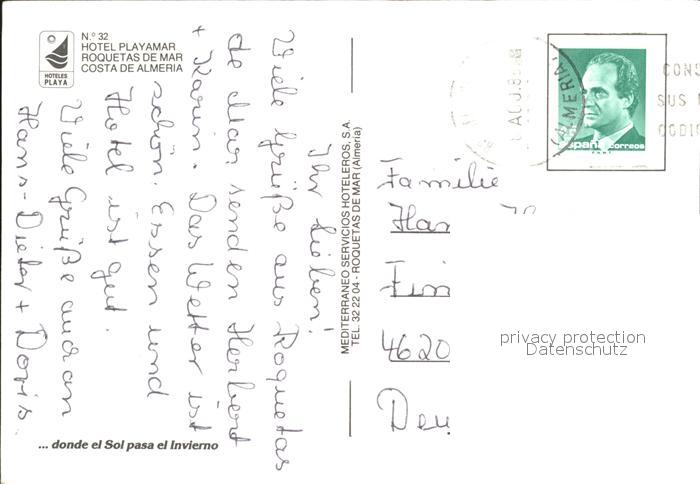 N.º 32
HOTEL PLAYAMAR
ROQUETAS DE MAR
COSTA DE ALMERIA
HOTELES
PLAYA
Ihr Lieben!
Viele Grüße aus Roquetas
de Mar, senden Herbert
+ Karin. Das Wetter ist
schön. Essen und
Hotel ist gut.
Viele Grüße auch an
Hans-Dieter + Doris.
... donde el Sol pasa el Invierno
MEDITERRANEO SERVICIOS HOTELEROS, S.A.
TEL. 32 22 04 - ROQUETAS DE MAR (Almeria)
ALMERIA
España correos
CONS
SUS
CODIG
Familie
Har
4620
Deu
privacy protection
Datenschutz